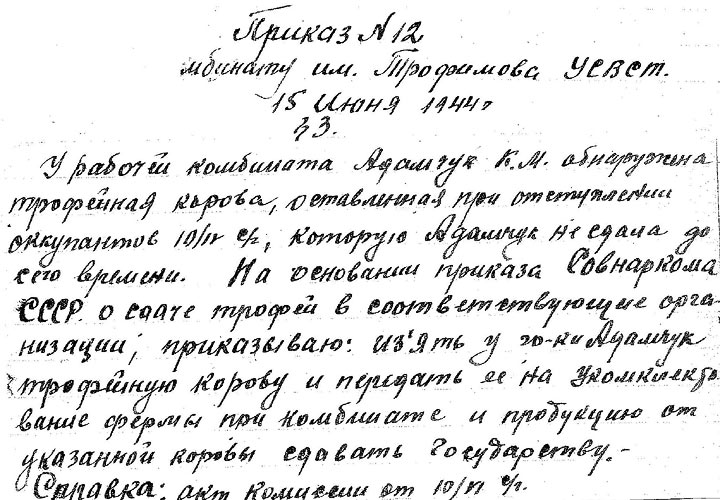 Приказ N 12
мбинату им. Трофимова УСВСТ.
15 Июня 1944г
§3.
У рабочей комбината Адамчук К.М. обнаружена
трофейная корова, оставленная при отступлении
оккупантов 10/IV с/г, которую Адамчук не сдала до
сего времени. На основании приказа Совнаркома
СССР о сдаче трофей в соответствующие орга-
низации, приказываю: из'ять у гр-ки Адамчук
трофейную корову и передать ее на укомплекто
вание фермы при комбинате и продукцию от
указанной коровы сдавать Государству.-
Справка: акт комиссии от 10/VI с/г.